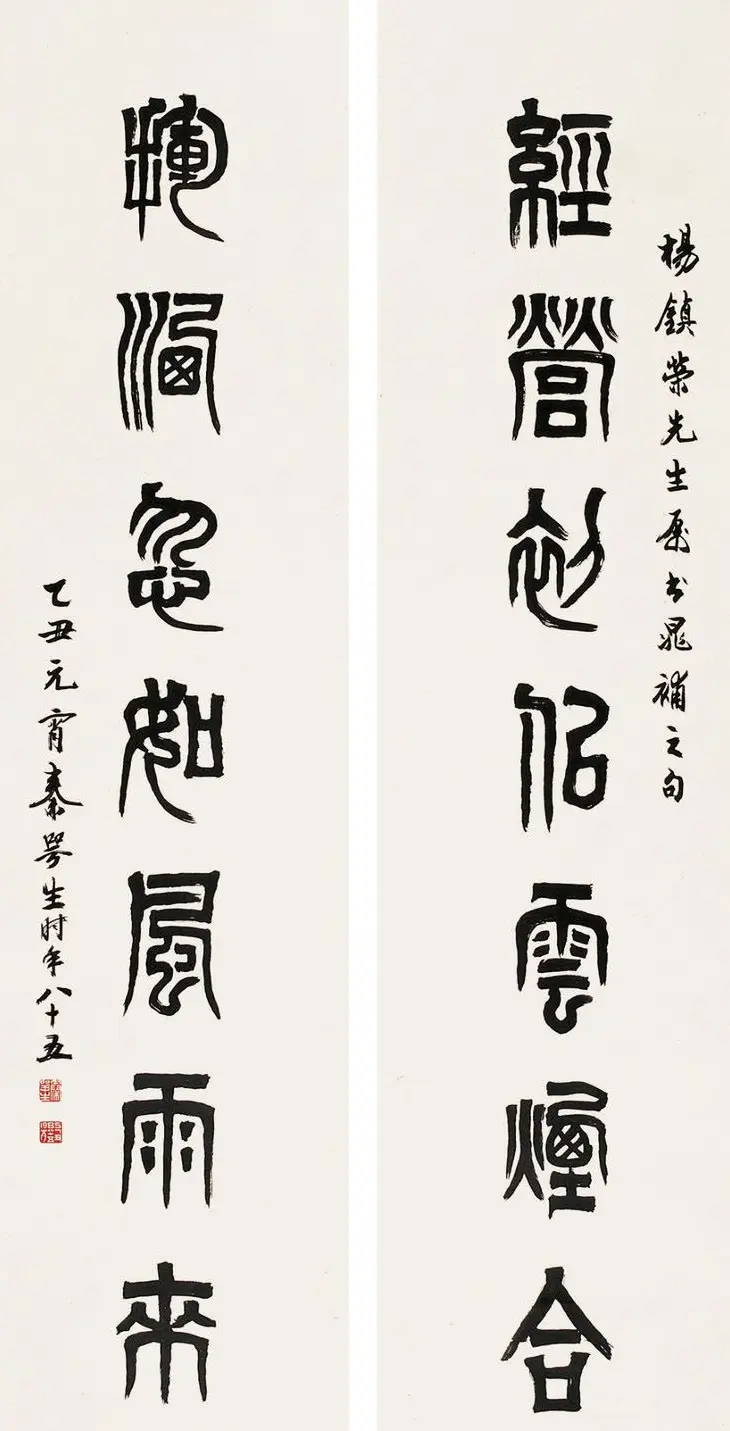 楊鎮榮先生屬書晁補之句
經營初似雲煙合
揮洒忽如風雨來
乙丑元宵秦咢生时年八十五